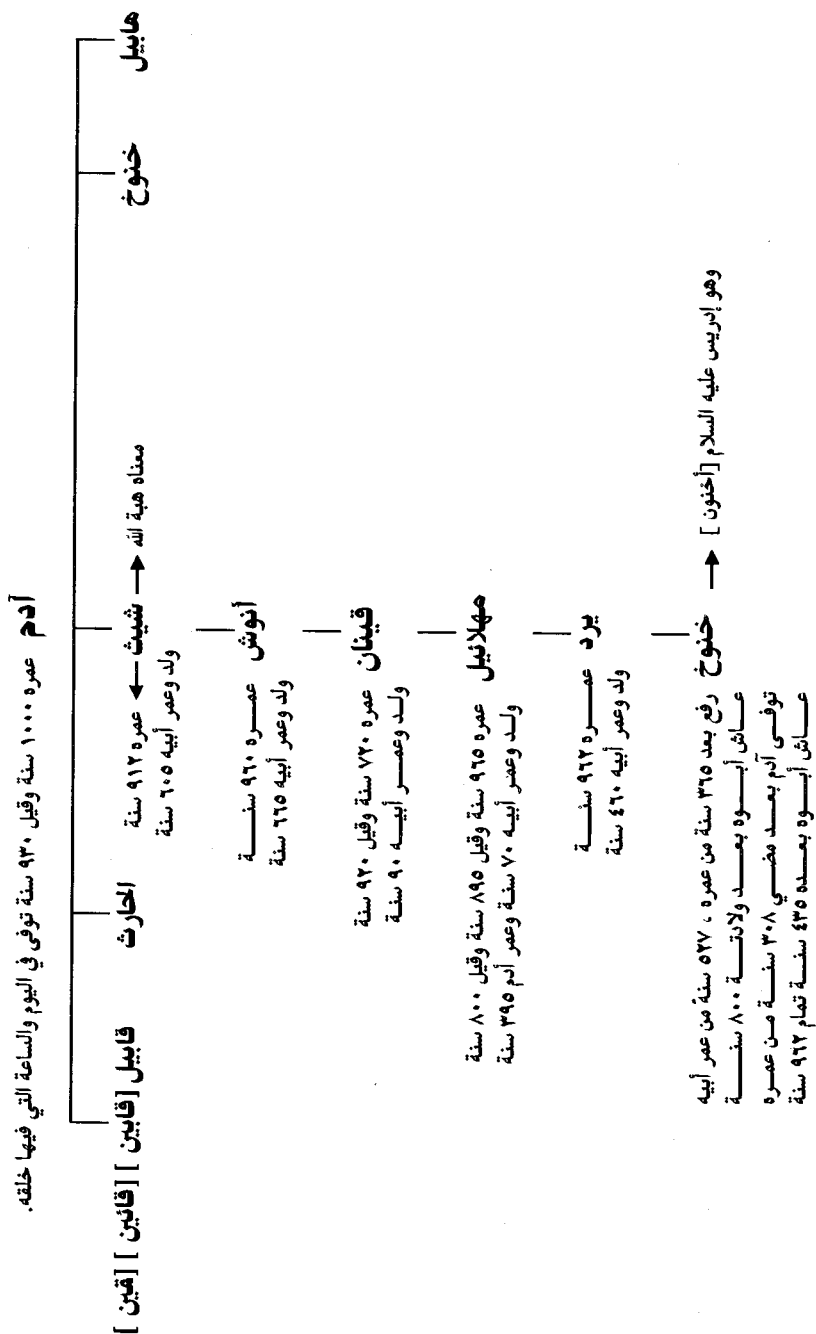 آدم عمره ١٠٠٠ سنة وقيل ٩٣٠ سنة توفى في اليوم والساعة التي فيها خلقه.
هابيل
خنوخ
شيث ← معناه هبة الله
عمره ٩١٢ سنة
ولد وعمر أبيه ٦٠٥ سنة
الحارث
قابيل [قابين] [قائين] [قين]
أنوش عمره ٩٦٠ سنة
ولد وعمر أبيه ٦٦٥ سنة
قينان عمره ٧٢٠ سنة وقيل ٩٢٠ سنة
ولد وعمر أبيه ٩٠ سنة
مهلائيل عمره ٩٦٥ سنة وقيل ٨٩٥ سنة وقيل ٨٠٠ سنة
ولد وعمر أبيه ٧٠ سنة وعمر آدم ٣٩٥ سنة
يرد عمره ٩٦٢ سنة
ولد وعمر أبيه ٤٦٠ سنة
خنوخ ← وهو إدريس عليه السلام [أخنون]
رفع بعد ٣٦٥ سنة من عمره ، ٥٢٧ سنة من عمر أبيه
عاش أبوه بعد ولادته ٨٠٠ سنة
توفى آدم بعد مضي ٣٠٨ سنة من عمره
عاش أبوه بعده ٤٣٥ سنة تمام ٩٦٢ سنة